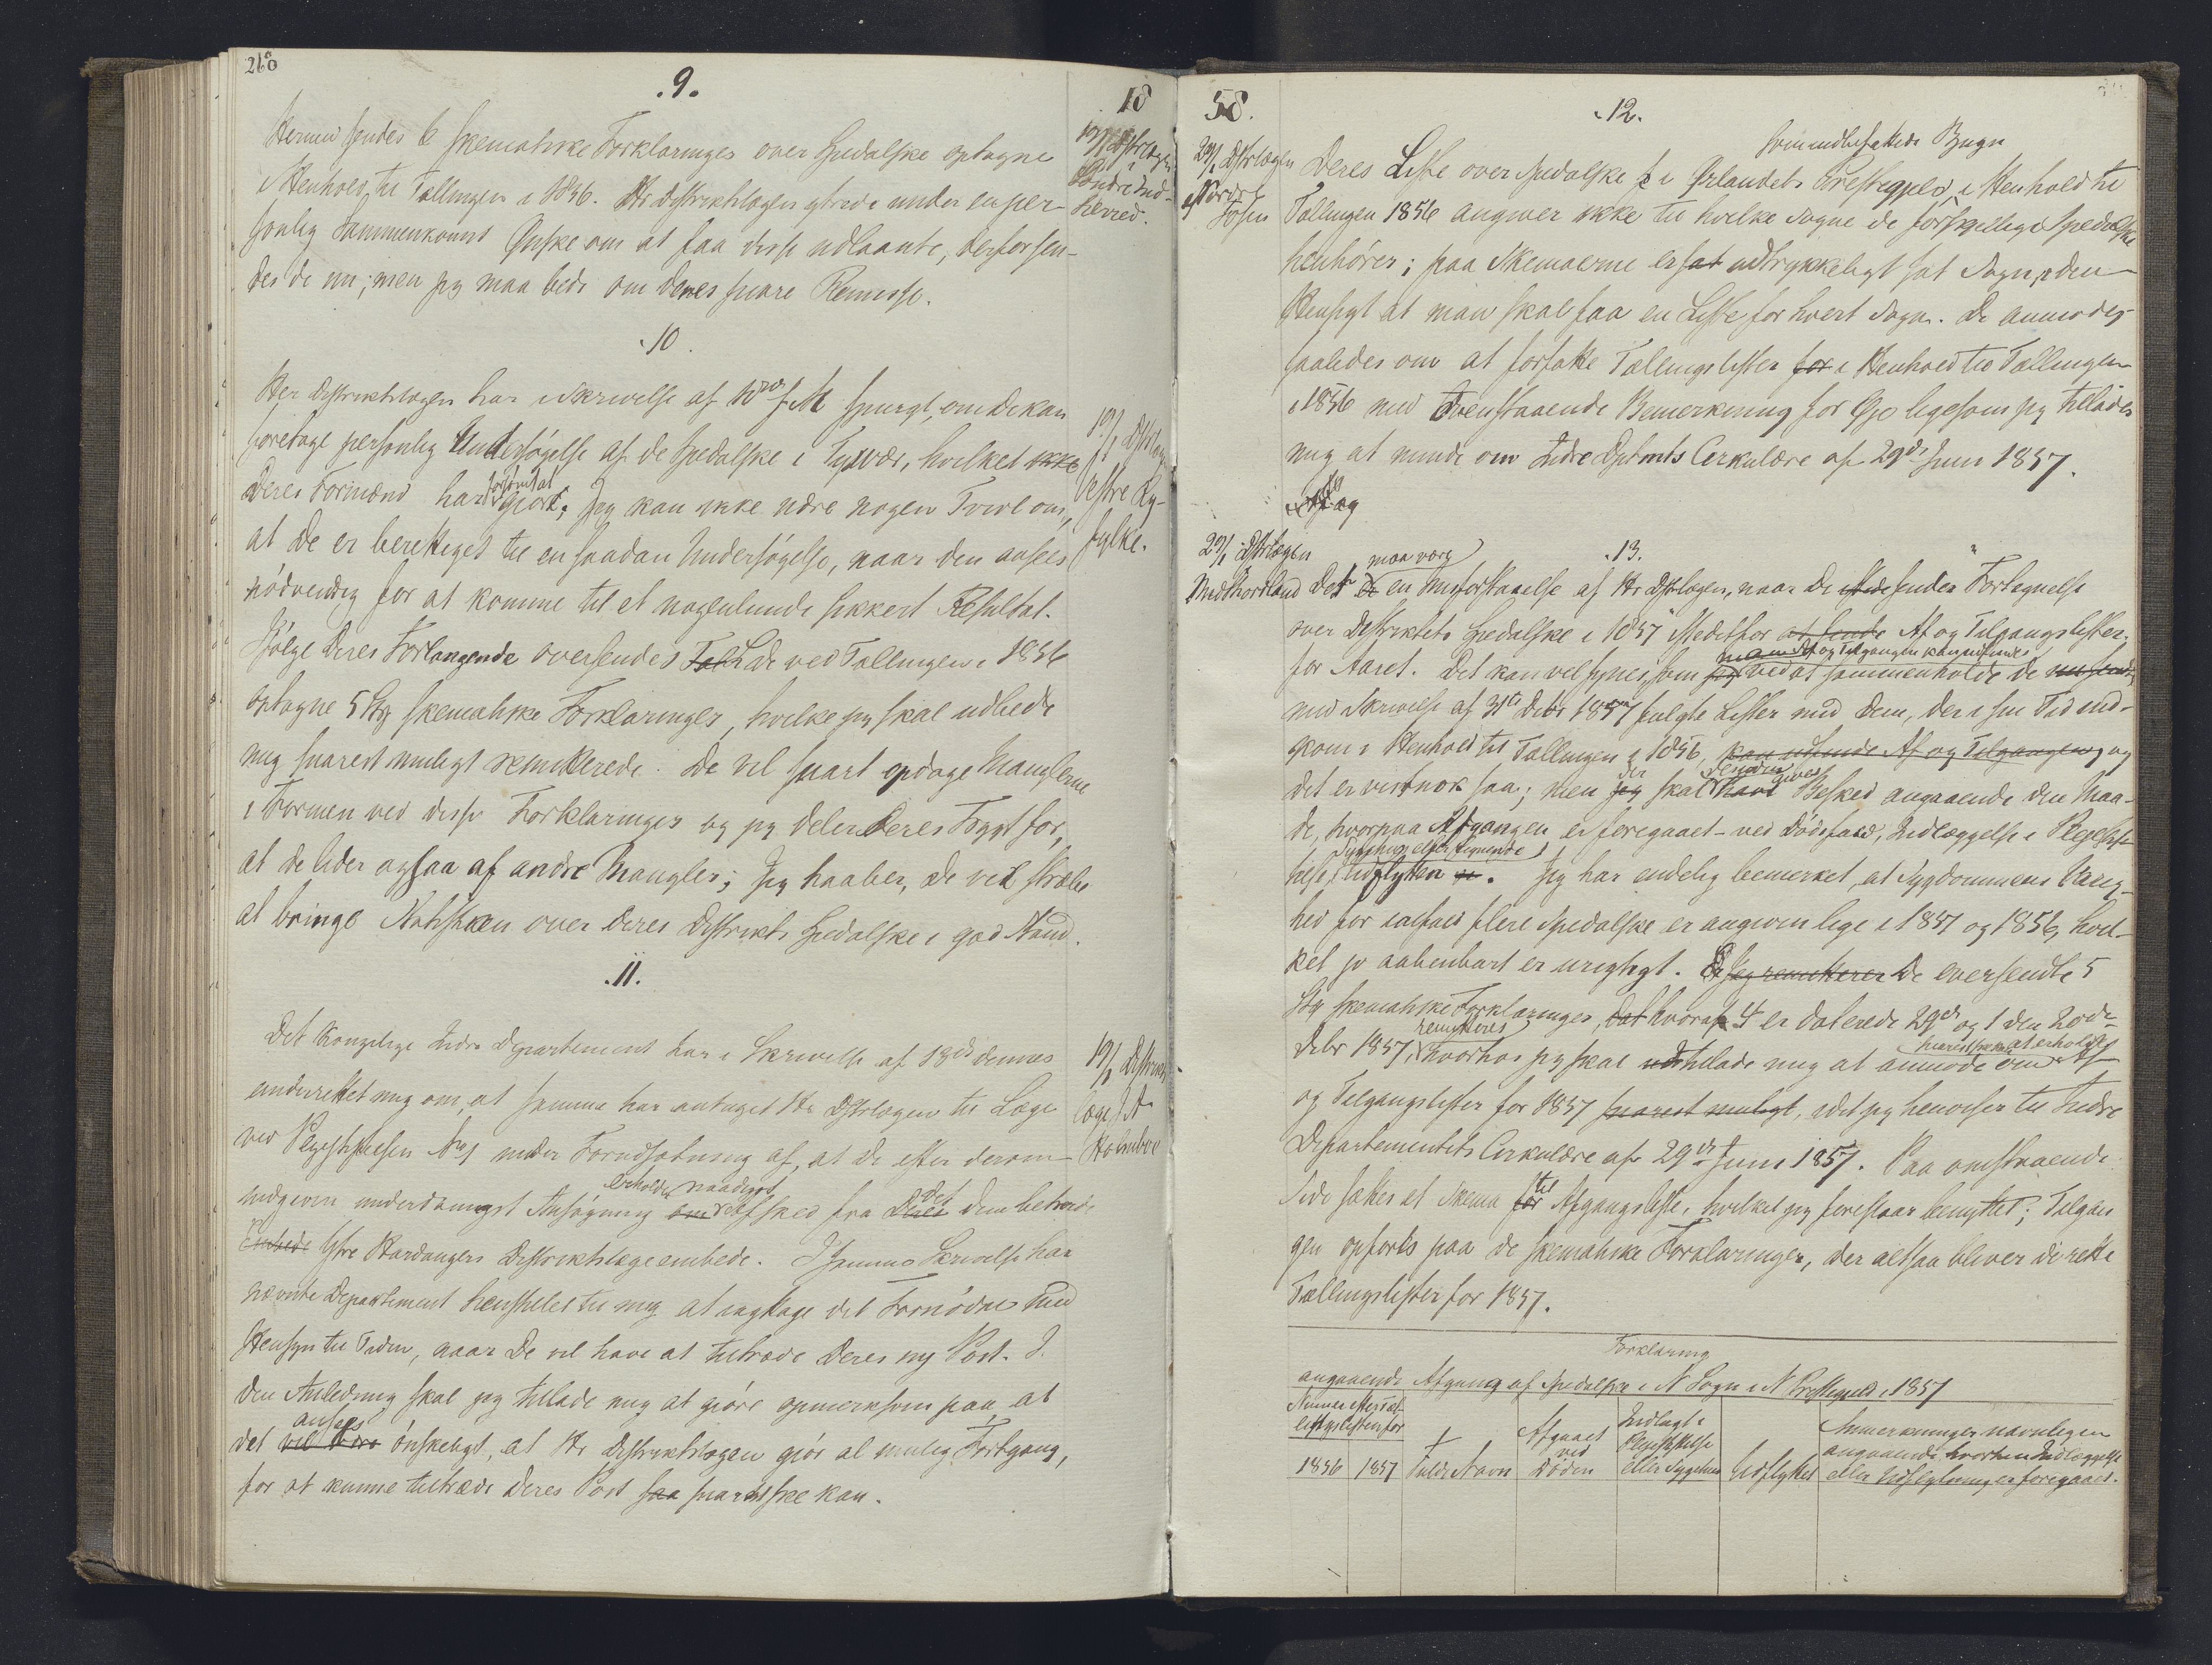 268
.9.
18
Hermed sendes 6 skematiske Forklaringer over Spedalske optagne
i Henhold til Tællingen i 1856. Hr Distriktslægen ytrede under en per-
sonlig Sammenkomst Ønske om at faa disse udlaante, derfor sen-
des de nu; men jeg maa bede om deres snare Remisse.
19/1 Dstrlægen
i Søndre Ind-
herred.
.10.
Hr Distriktslægen har i Skrivelse af 10de f. M. spurgt, om De kan
foretage personlig Undersøgelse af de Spedalske i Tysvær, hvilket ikke
Deres Formænd har forsømt at gjort; Jeg kan ikke nære nogen Tvivl om,
at De er berettiget til en saadan Undersøgelse, naar den ansees
nødvendig for at komme til et nogenlunde sikkert Resultat.
Ifølge Deres Forlangende oversendes Tæll De ved Tællingen i 1856
optagne 5 Stk skematiske Forklaringer, hvilke jeg skal udbede
mig snarest muligt remitterede. De vil snart opdage Manglerne
i Formen ved disse Forklaringer og jeg deler Deres Frygt for,
at de lider ogsaa af andre Mangler; Jeg haaber, De vil stræbe
at bringe Statistiken over Deres Distrikts Spedalske i god Stand.
19/1 Dstrlægen
Vestre Ry-
fylke.
.11.
Det Kongelige Indre Departement har i Skrivelse af 18de dennes
underrettet mig om, at samme har antaget Hr Dstrlægen til Læge
ved Plejestiftelsen No 1 under Forudsætning af, at De efter derom
indgiven underdanigst Ansøgning om erholder naadigst Afsked fra Deres det Dem betroede
Embede Ytre Hardangers Distriktslægeembede. I samme Skrivelse har
nævnte Departement henstillet til mig at iagttage det Fornødne med
Hensyn til Tiden, naar De vil have at tiltræde Deres ny Post. I
den Anledning skal jeg tillade mig at gjøre opmerksom paa, at
det vil være ansees ønskeligt, at Hr Distriktslægen gjør al mulig Fortgang,
for at kunne tiltræde Deres Post saa snarest ske kan.
19/1 Distrikts
læge J. A.
Holmboe
58.
.12.
Deres Liste over Spedalske i Ørlandets Præstegjeld, i Henhold til
Tællingen 1856 angiver ikke til hvilke Sogne de forskjellige Spedalske
henhører; paa Skemaerne er sat udtrykkeligt sat Sogn, i den
Hensigt at man skal faa en Liste for hvert Sogn. De anmodes
saaledes om at forfatte Tællingslister for i Henhold til Tællingen
i 1856 med ovenstaaende Bemerkning for Øje ligesom jeg tillader
mig at minde om Indre Dptmts Cirkulære af 29de Juni 1857.
29/1 Dstrlægen
i Nordre
Fosen
.13.
29/1 Dstrlægen
i Midthordland
Det er maa være en Misforstaaelse af Hr Dstrlægen, naar De istede sender "Fortegnelse
over Distriktets Spedalske i 1857" istedetfor at sende Af og Tilgangslister
for Aaret. Det kan vel synes, som jeg man Af og Tilgangen kan udfinde ved at sammenholde de nu sendte
med Skrivelse af 31te Debr 1857 fulgte Lister med dem, der i sin Tid ind-
kom i Henhold til Tællingen i 1856, kan udfinde Af og Tilgangen, og
det er vistnok saa; men jeg der skal have desuden gives Besked angaaende den Maa-
de, hvorpaa Afgangen er foregaaet – ved Dødsfald, Indlæggelse i Plejestif-
telse, Sygehus eller lignende, Udflytten. Jeg har endelig bemerket, at Sygdommens Varig-
hed for ialfald flere Spedalske er angiven lige i 1857 og 1856, hvil-
ket jo aabenbart er urigtigt. Jeg remitterer De oversendte 5
Stk skematiske Forklaringer, dat hvoraf 4 er daterede 29de og 1 den 20de
Debr 1857, remitteres hvorhos jeg skal tillade mig at anmode om snarest ske kan at erholde Af
og Tilgangslister for 1857 snarest muligt, idet jeg henviser til Indre
Departementets Cirkulære af 29de Juni 1857. Paa omstaaende
Side sættes et Skema for til Afgangsliste, hvilket jeg foreslaar benyttet; Tilgan
gen opføres paa de skematiske Forklaringer, der altsaa bliver de rette
Tællingslister for 1857.
Forklaring
angaaende Afgang af Spedalske i N Sogn i N Præstegjeld i 1857
1856
1857
Fulde Navn
Afgaaet
ved
Døden
Indlagt i
Plejestiftelse
eller Sygehus
Udflyttet
Anmerkninger navnligen
angaaende hvorhen Indlæggelse
eller Udflytning er foregaaet.